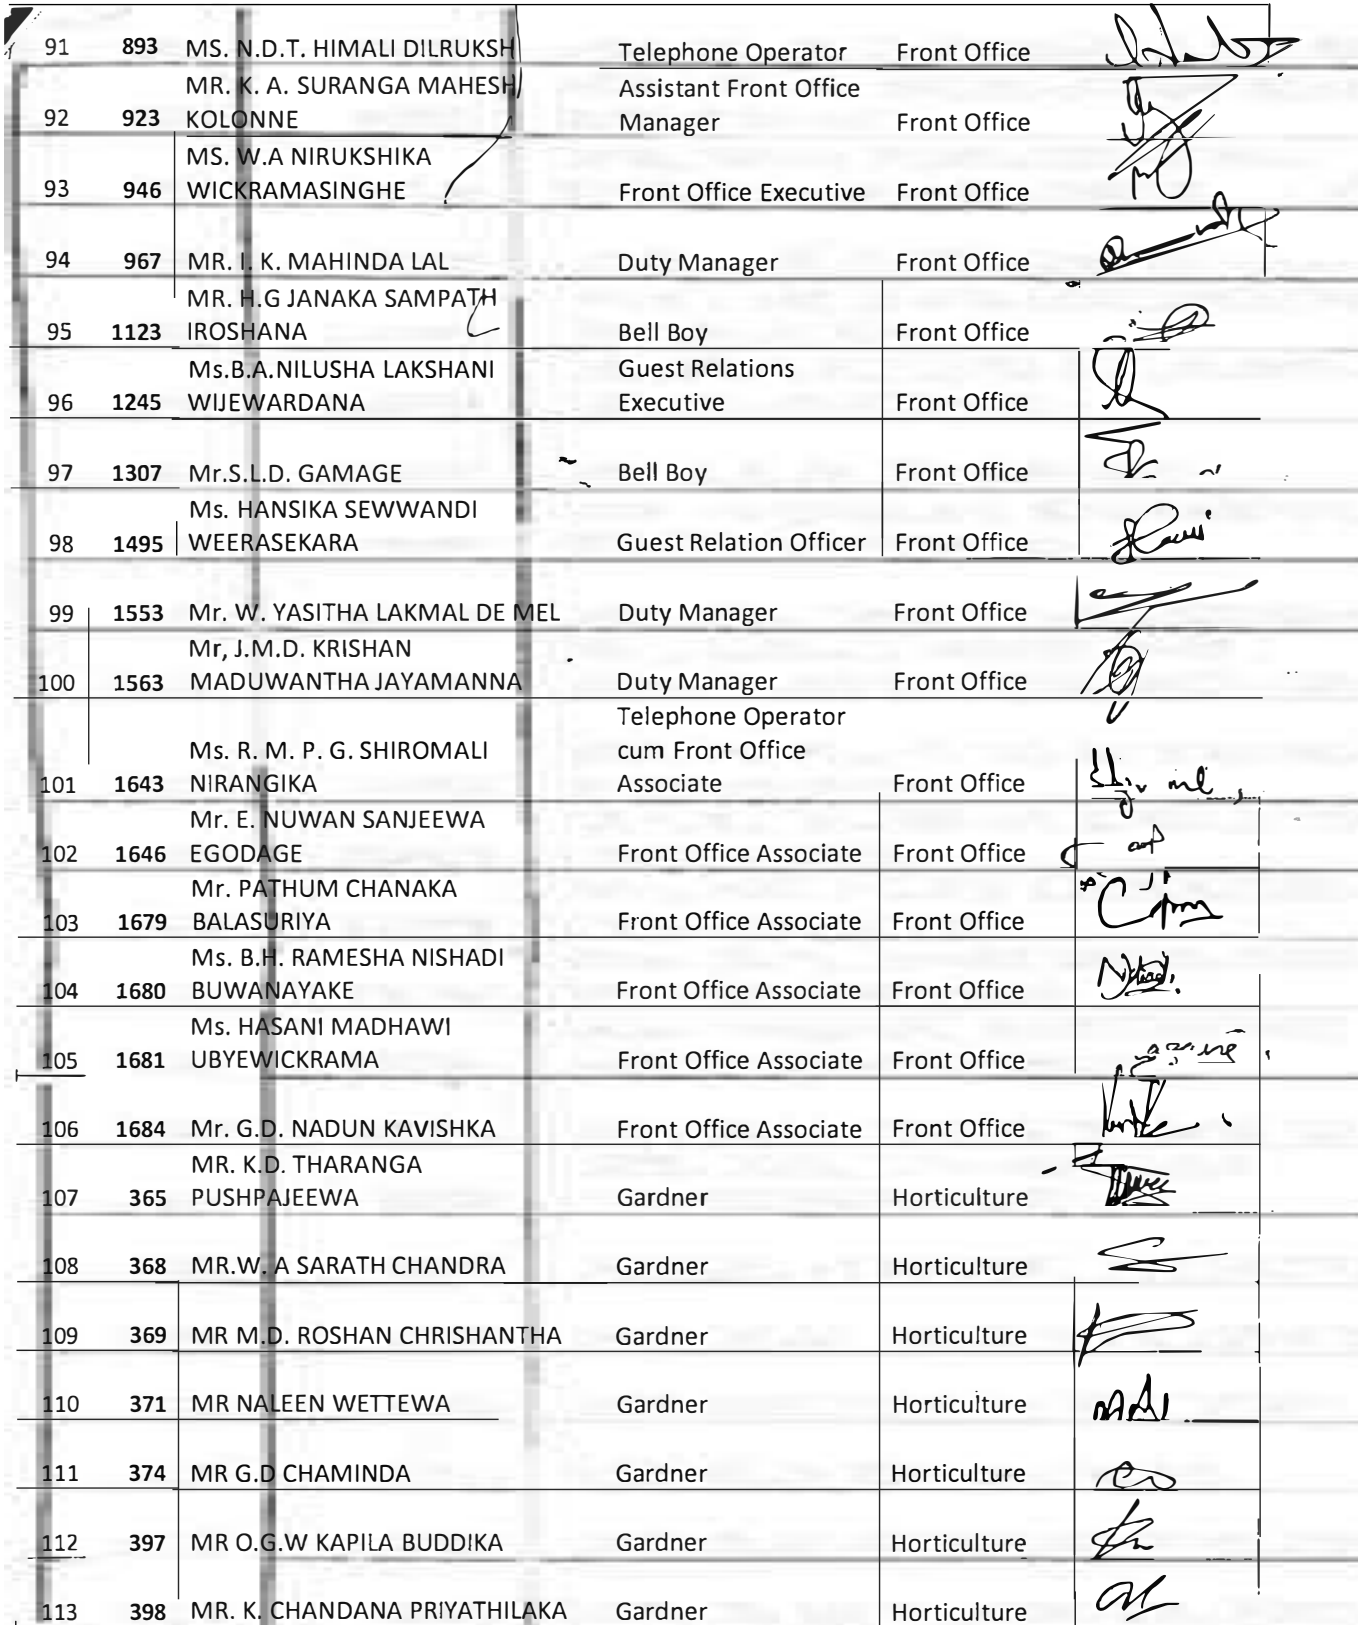 91 893 MS. N.D.T. HIMALI DILRUKSHI Telephone Operator Front Office
MR. K. A. SURANGA MAHESH Assistant Front Office
92 923 KOLONNE Manager Front Office
MS. W.A NIRUKSHIKA
93 946 WICKRAMASINGHE Front Office Executive Front Office
94 967 MR. I. K. MAHINDA LAL Duty Manager Front Office
MR. H.G JANAKA SAMPATH
95 1123 IROSHANA Bell Boy Front Office
Ms.B.A.NILUSHA LAKSHANI Guest Relations
96 1245 WIJEWARDANA Executive Front Office
97 1307 Mr.S.L.D. GAMAGE Bell Boy Front Office
Ms. HANSIKA SEWWANDI
98 1495 WEERASEKARA Guest Relation Officer Front Office
99 1553 Mr. W. YASITHA LAKMAL DE MEL Duty Manager Front Office
Mr, J.M.D. KRISHAN
100 1563 MADUWANTHA JAYAMANNA Duty Manager Front Office
Telephone Operator
Ms. R. M. P. G. SHIROMALI cum Front Office
101 1643 NIRANGIKA Associate Front Office
Mr. E. NUWAN SANJEEWA
102 1646 EGODAGE Front Office Associate Front Office
Mr. PATHUM CHANAKA
103 1679 BALASURIYA Front Office Associate Front Office
Ms. B.H. RAMESHA NISHADI
104 1680 BUWANAYAKE Front Office Associate Front Office
Ms. HASANI MADHAWI
105 1681 UBYEWICKRAMA Front Office Associate Front Office
106 1684 Mr. G.D. NADUN KAVISHKA Front Office Associate Front Office
MR. K.D. THARANGA
107 365 PUSHPAJEEWA Gardner Horticulture
108 368 MR.W. A SARATH CHANDRA Gardner Horticulture
109 369 MR M.D. ROSHAN CHRISHANTHA Gardner Horticulture
110 371 MR NALEEN WETTEWA Gardner Horticulture
111 374 MR G.D CHAMINDA Gardner Horticulture
112 397 MR O.G.W KAPILA BUDDIKA Gardner Horticulture
113 398 MR. K. CHANDANA PRIYATHILAKA Gardner Horticulture